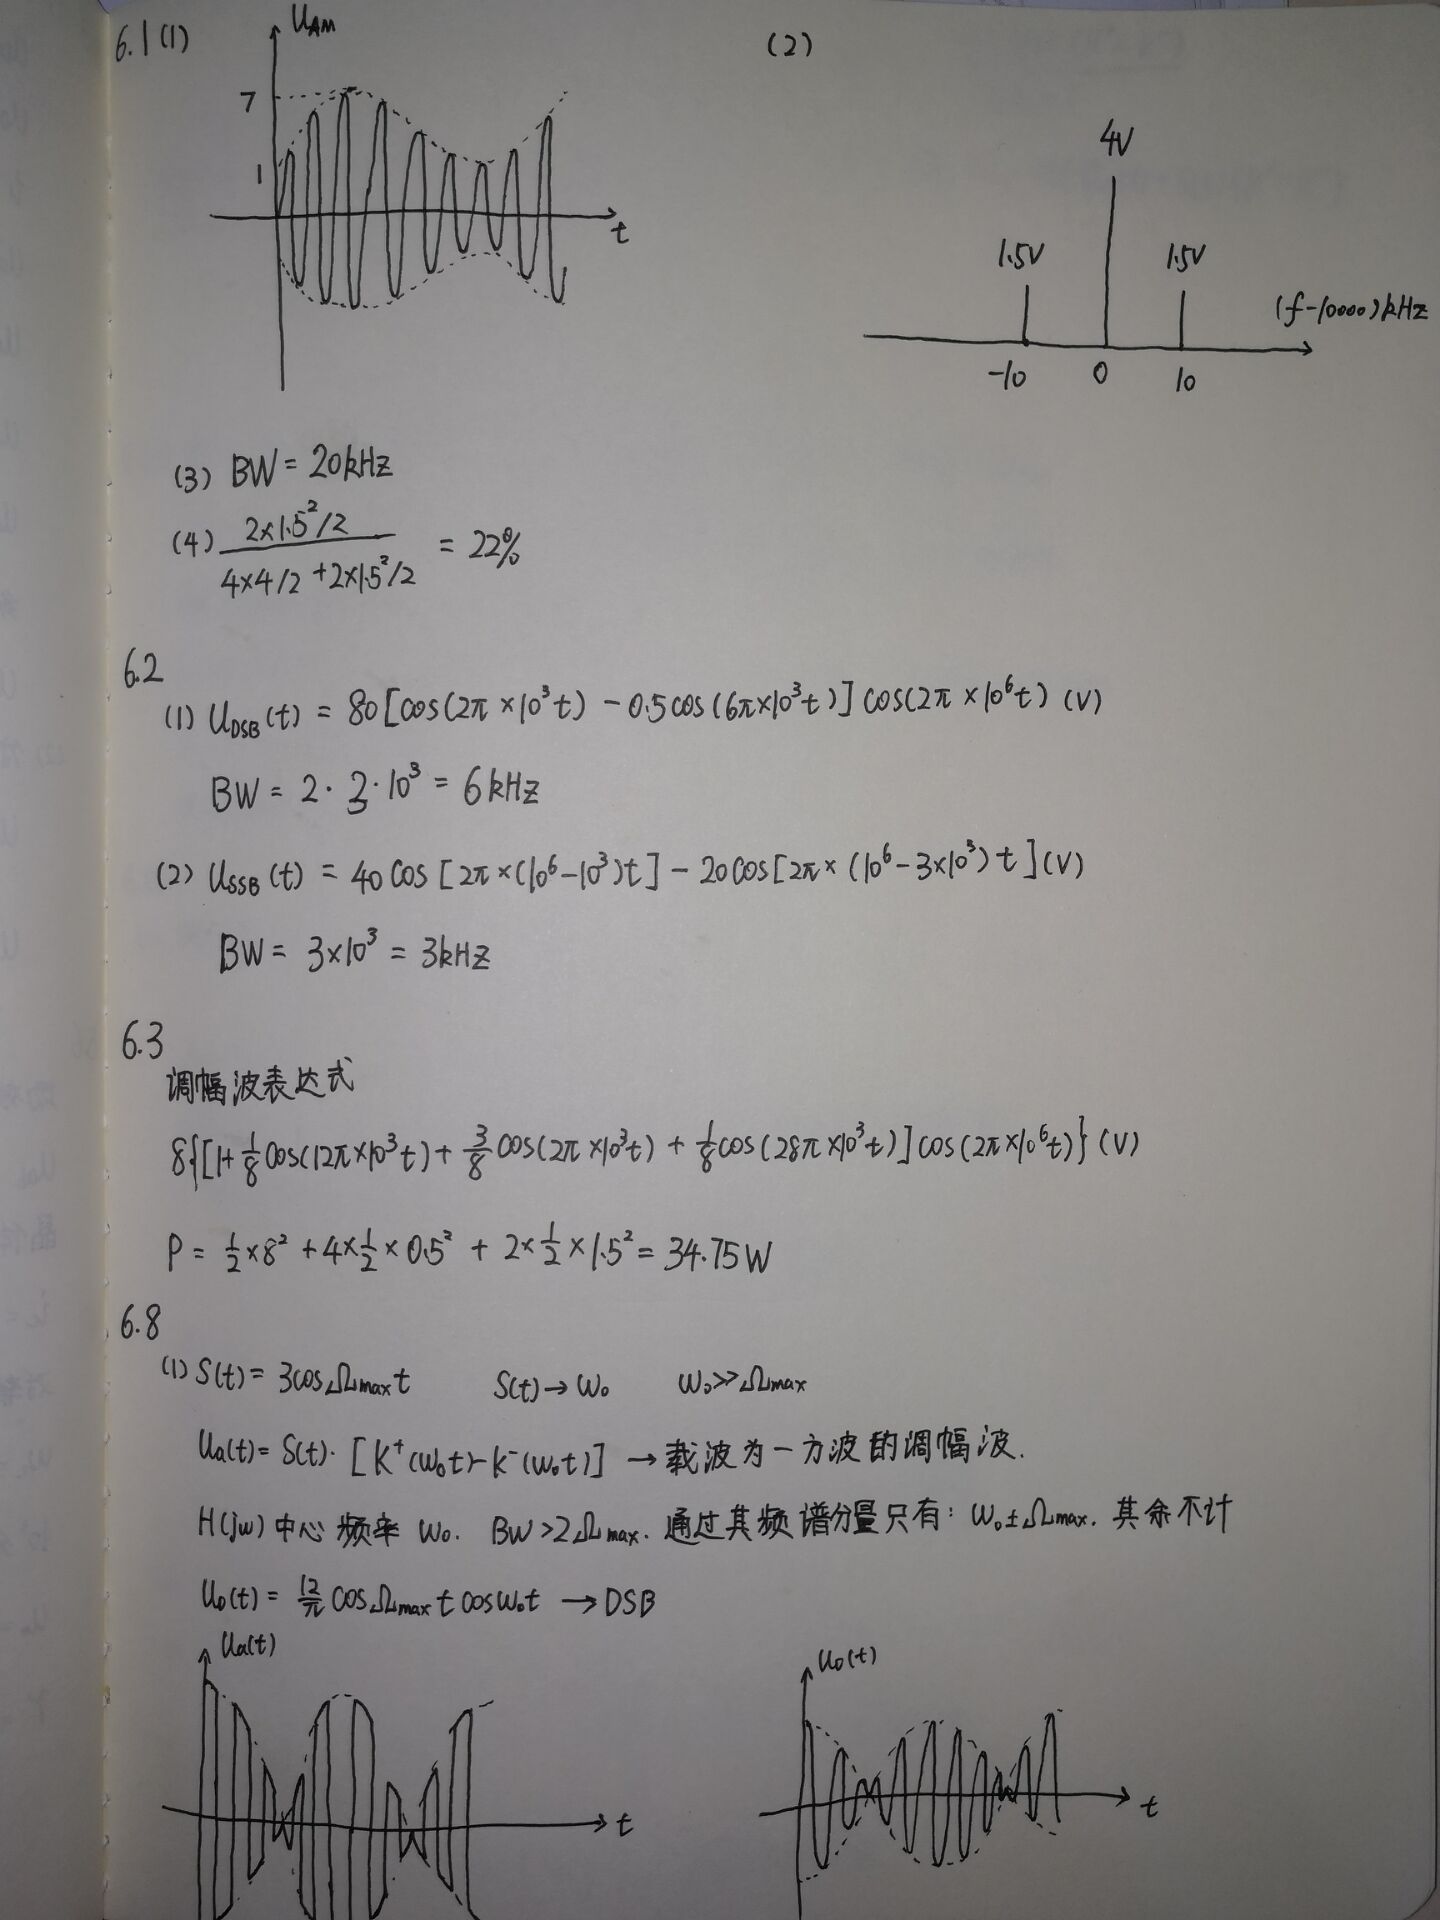 6.1 (1)
U_AM
7
1
t
(2)
4V
1.5V 1.5V
(f-10000)kHz
-10 0 10
(3) BW = 20kHz
(4) (2×1.5²/2)/(4×4/2+2×1.5²/2) = 22%
6.2
(1) U_DSB(t) = 80[cos(2π×10³t) - 0.5cos(6π×10³t)]cos(2π×10⁶t) (V)
BW = 2·3·10³ = 6kHz
(2) U_SSB(t) = 40cos[2π×(10⁶-10³)t] - 20cos[2π×(10⁶-3×10³)t](V)
BW = 3×10³ = 3kHz
6.3
调幅波表达式
8{[1+1/8cos(12π×10³t)+3/8cos(2π×10³t)+1/8cos(28π×10³t)]cos(2π×10⁶t)}(V)
P = 1/2×8²+4×1/2×0.5²+2×1/2×1.5² = 34.75W
6.8
(1) S(t) = 3cosΩmaxt S(t)→ω₀ ω₀≫Ωmax
Ua(t) = S(t)·[K⁺(ω₀t)-K⁻(ω₀t)] →载波为一方波的调幅波.
H(jω)中心频率ω₀. BW>2Ωmax. 通过其频谱分量只有: ω₀±Ωmax. 其余不计
U₀(t) = 12/π cosΩmaxt cosω₀t → DSB
Ua(t)
t
U₀(t)
t